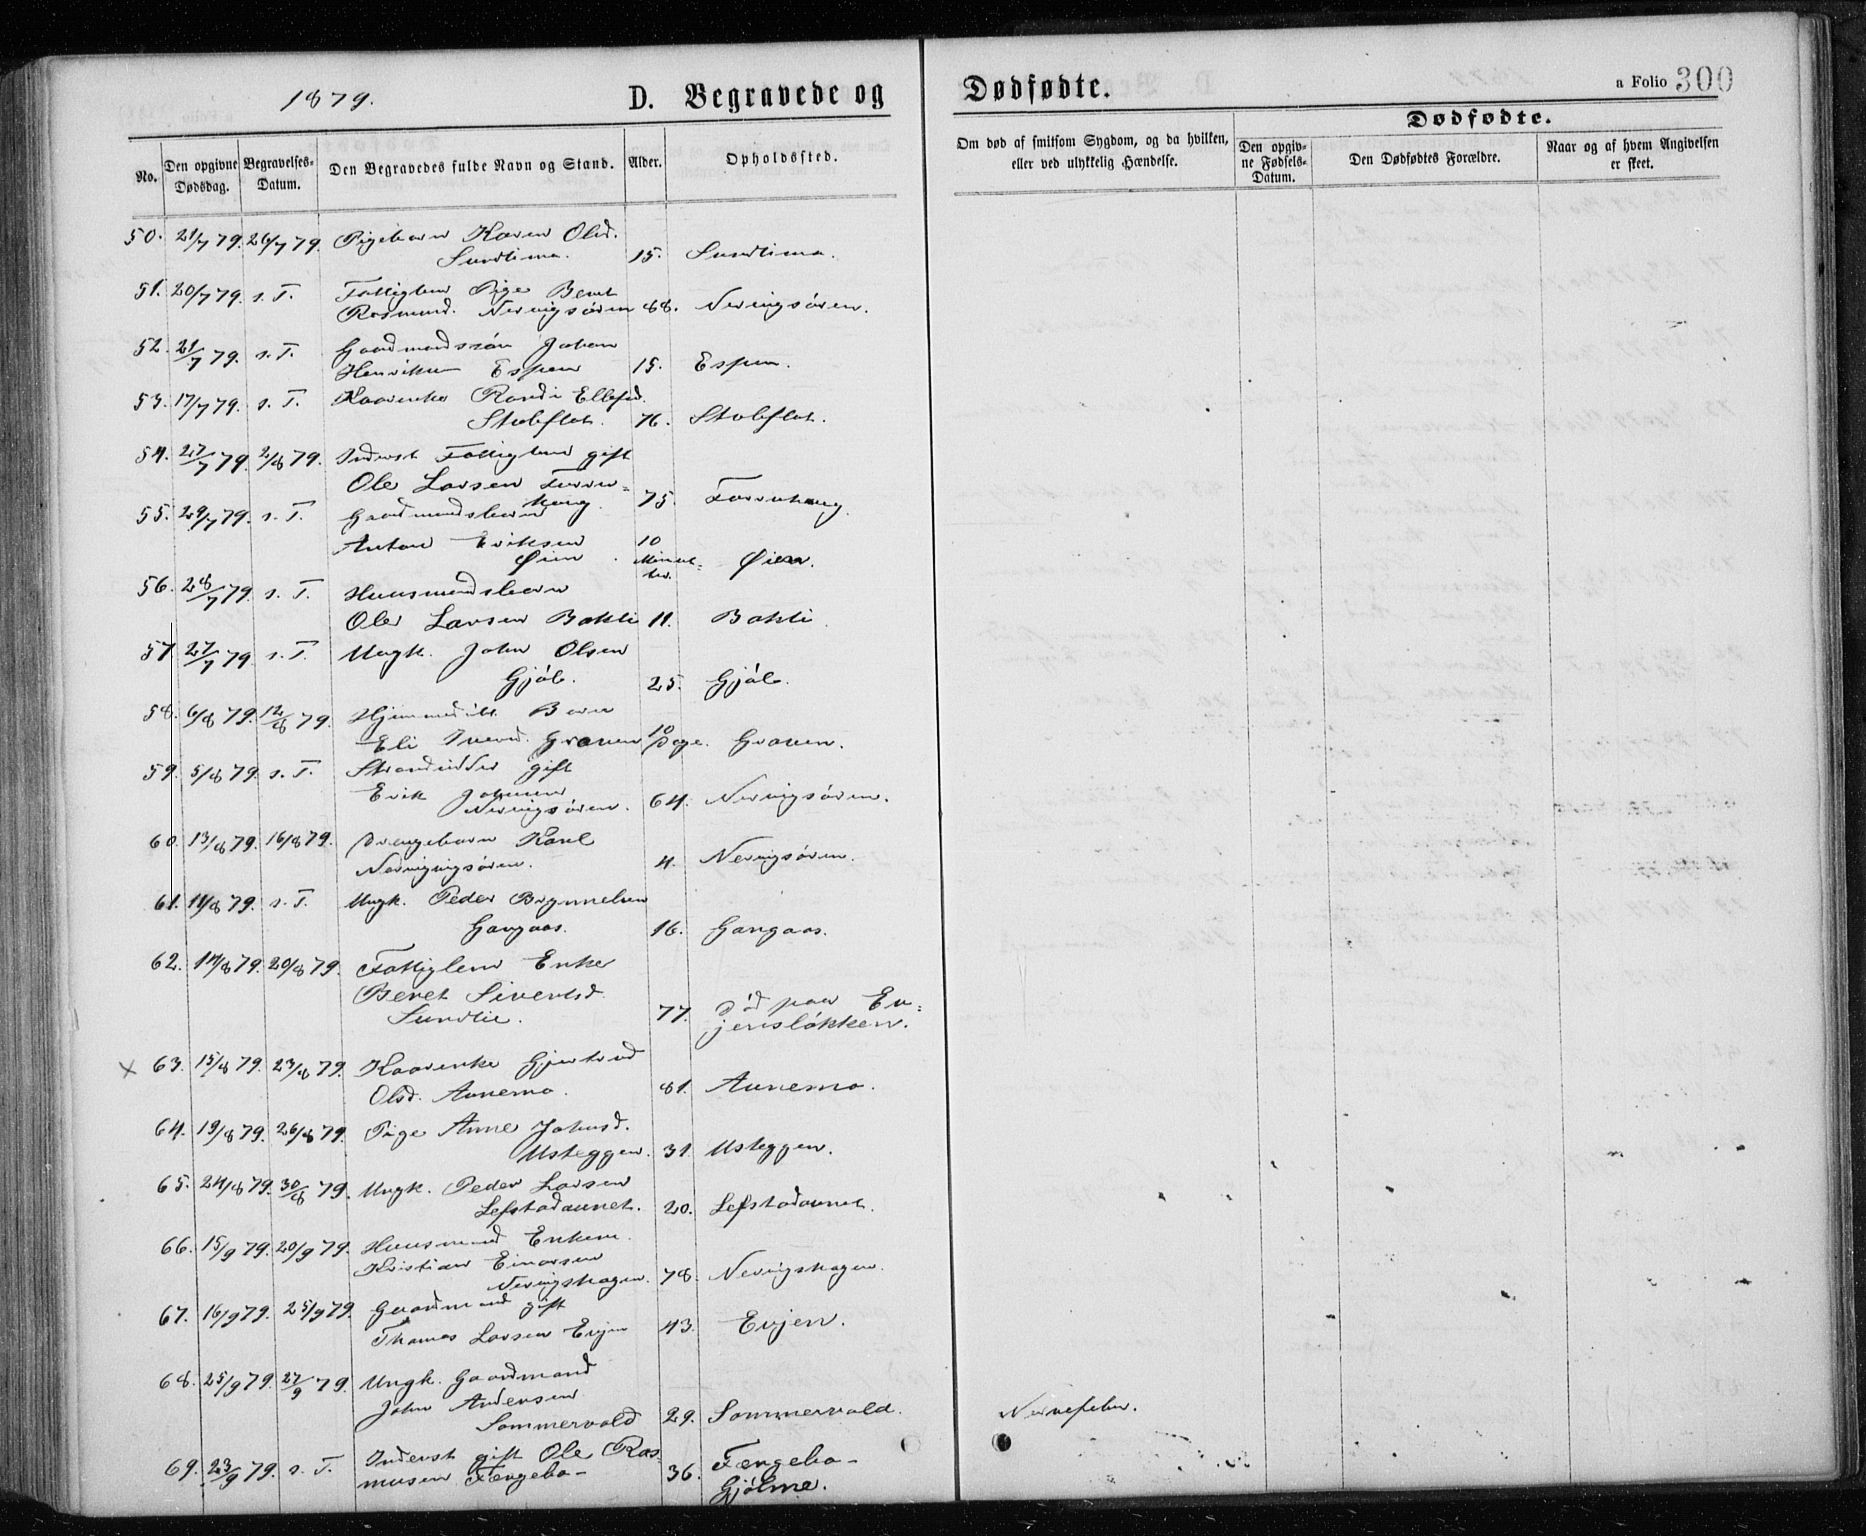 1879. D. Begravede og Dødfødte. a Folio 300
No. Den opgivne Dødsdag. Begravelses-Datum. Den Begravedes fulde Navn og Stand. Alder. Opholdssted. Om død af smitsom Sygdom, og da hvilken, eller ved ulykkelig Hændelse. Dødfødte. Den opgivne Fødsels-Datum. Den Dødfødtes Forældre. Naar og af hvem Angivelsen er skeet.
50. 21/7 79. 26/7 79. Pigebarn Karen Olsd.
Sundlimo. 15. Sundlimo.
51. 20/7 79. s. T. Fattiglem Pige Beret
Rasmusd. Nervigsøren 88. Nervigsøren.
52. 21/7 79. s. T. Gaardmandssøn Johan
Henriksen Espen 15. Espen.
53. 17/7 79. s. T. Kaarenke Randi Ellefsd.
Stobflot. 76. Stobflot.
54. 27/7 79. 2/8 79. Inderst Fattiglem gift
Ole Larsen
haug 75.
55. 29/7 79. s. T. Gaardmandsbarn
Anton Eriksen 10
Øien. Minutter. Øien.
56. 28/7 79. s. T. Huusmandsbarn
Ole Larsen Bakli 11. Bakli.
57 27/7 79. s. T. Ungk. John Olsen
Gjøle. 25. Gjøle.
58. 6/8 79. 12/8 79. Barn
Eli Iversd. Graven 10 Dage. Graven.
59. 5/8 79. s. T. Strandsidder gift
Erik Johnsen
Nervigsøren. 64. Nervigsøren.
60. 13/8 79. 16/8 79. Drengebarn Karel
Nervigsøren. 4. Nervigsøren.
61. 11/8 79. s. T. Ungk. Peder Brynnelsen
Gangaas. 16. Gangaas.
62. 14/8 79. 20/8 79. Fattiglem Enke
Beret Sivertsd.
Sundlie. 77. Død paa Ev-
jensløkken.
x 63. 15/8 79. 23/8 79. Kaarenke Gjertrud
Olsd. Aunemo. 81. Aunemo.
64. 19/8 79. 26/8 79. Pige Anne Johnsd.
Usteggen. 31. Usteggen.
65. 24/8 79. 30/8 79. Ungk. Peder Larsen
Lefstadaunet. 20. Lefstadaunet.
66. 15/9 79. 20/9 79. Huusmand Enkem.
Kristian Einarsen
Nervigshagen. 78. Nervigshagen.
67. 16/9 79. 25/9 79. Gaardmand gift
Thomas Larsen Evjen 43. Evjen.
68. 25/9 79. 27/9 79. Ungk. Gaardmand
John Andersen
Sommervold 29. Sommervold. Nervefeber.
69. 23/9 79. s. T. Inderst gift Ole Ras-
musen Fængebo- 36. Fængebo-
Gjølme.